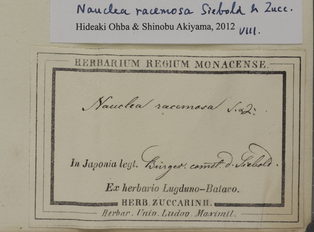 Nauclea racemosa Siebold & Zucc.
Hideaki Ohba & Shinobu Akiyama, 2012 VIII.
HERBARIUM REGIUM MONACENSE.
Nauclea racemosa S. Z.
In Japonia legt. Bürger comt. d. Siebold.
Ex herbario Lugduno-Batavo.
HERB. ZUCCARINII.
Herbar. Univ. Ludov. Maximil.